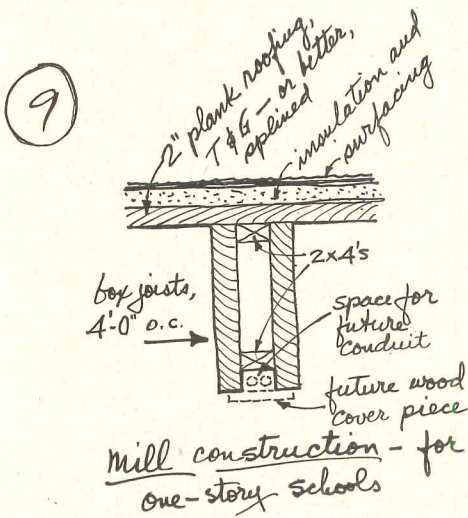 9
2" plank roofing,
T & G — or better,
splined
insulation and
surfacing
2x4's
box joists,
4'-0" o.c.
space for
future
conduit
future wood
cover piece
Mill construction - for
one-story schools